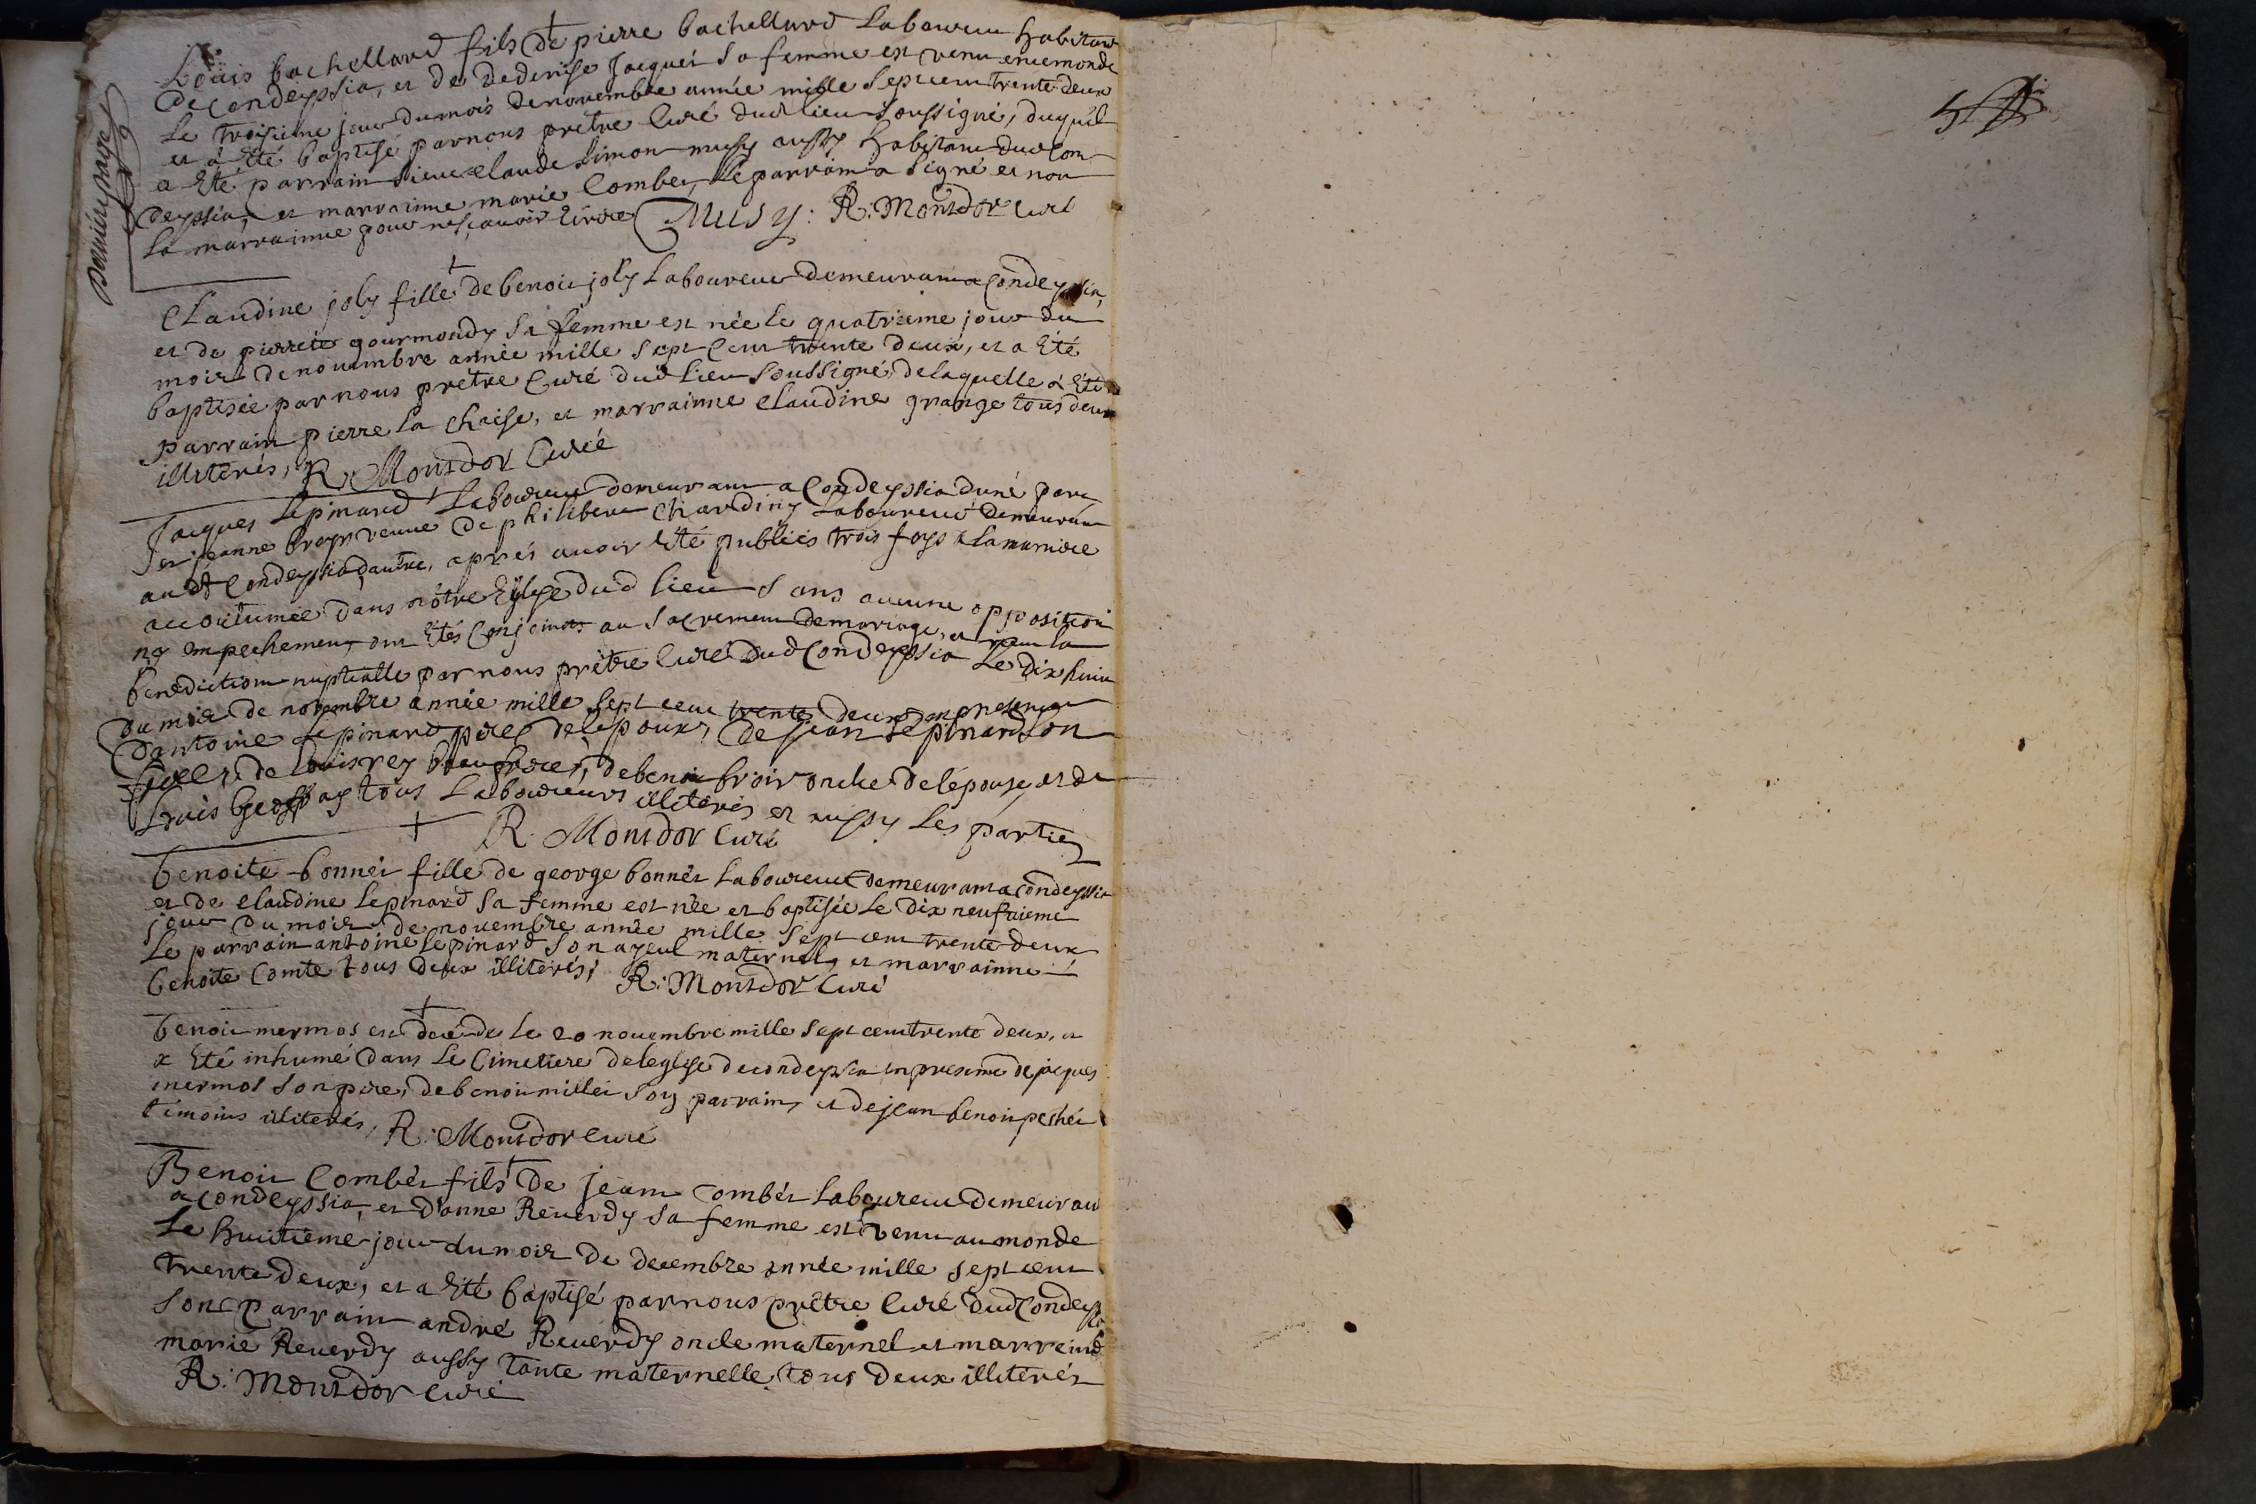 Dernière page
Loüis bachellard fils de pierre bachellard Laboureur habitant
de Condeyssia, et de dederise Jacquet sa femme est venu en ce monde
Le troisieme jour du mois de novembre année mille sept cent trente deux
et à Eté baptisé par nous prêtre Curé dud lieu soussigné, duquel
a Eté parrain sieur Claude Simon musy aussy habitant dud Con
deyssia, et marrainne marie Combet, le parrain a signé et non
La marrainne pour ne sçavoir Ecrire Musy: R: Montdor Curé
Claudine joly fille de benoit joly Laboureur demeurant a Condeyssia,
et de pierrete gourmondy sa femme est née le quatrieme jour du
mois de nouembre année mille sept Cent trente deux, et a Eté
baptisée par nous prêtre Curé dud Lieu soussigné, de laquelle a Eté
parrain pierre La Chaise, et marrainne Claudine grange tous deux
illiterés, R: Montdor Curé
Jacques Lepinard Laboureur demeurant a Condeyssia d'une part
et jeanne broyr veuve de philibert Chardiny Laboureur demeurant
aud Condeyssia d'autre, aprés avoir Eté publiés trois foys a la maniere
accoutumée dans nôtre Eglise dud lieu sans aucune opposition
ny empechement ont Etés Conjoints au sacrement de mariage, et receu la
benediction nuptialle par nous prêtre Curé dud Condeyssia Le dix huit
du mois de novembre année mille sept cent trente deux en presence
d'antoine Lepinard pere de lépoux, de jean Lepinard son
frere, de Louis rey beaufrere, de benoit broir oncle de lépouse, et de
Louis Geoffray tous Laboureurs illiterés et aussy les parties
R. Montdor Curé
benoite bonnet fille de george bonnet Laboureur demeurant a Condeyssia
et de Claudine Lepinard sa femme est née et baptisée Le dix neufuieme
jour du mois de nouembre année mille sept cent trente deux
Le parrain antoine Lepinard son ayeul maternel, et marrainne
benoite Comte tous deux illiterés; R: Montdor Curé
benoit mermos est decédé le 20 nouembre mille sept cent trente deux, et
a Eté inhumé dans Le Cimetiere de leglise de condeyssia en presence de jacques
mermos son pere, de benoit millet son parrain, et de jean benoit peshet
témoins illiterés, R: Montdor Curé
Benoit Combet fils de jean Combet Laboureur demeurant
a Condeyssia, et d'anne Reuerdy sa femme est venu au monde
Le huitieme jour du mois de decembre année mille sept cent
trente deux, et a Eté baptisé par nous prêtre Curé dud Condeyssia
son parrain andré Reuerdy oncle maternel et marreine
marie Reuerdy aussy tante maternelle tous deux illiterés
R: Montdor Curé